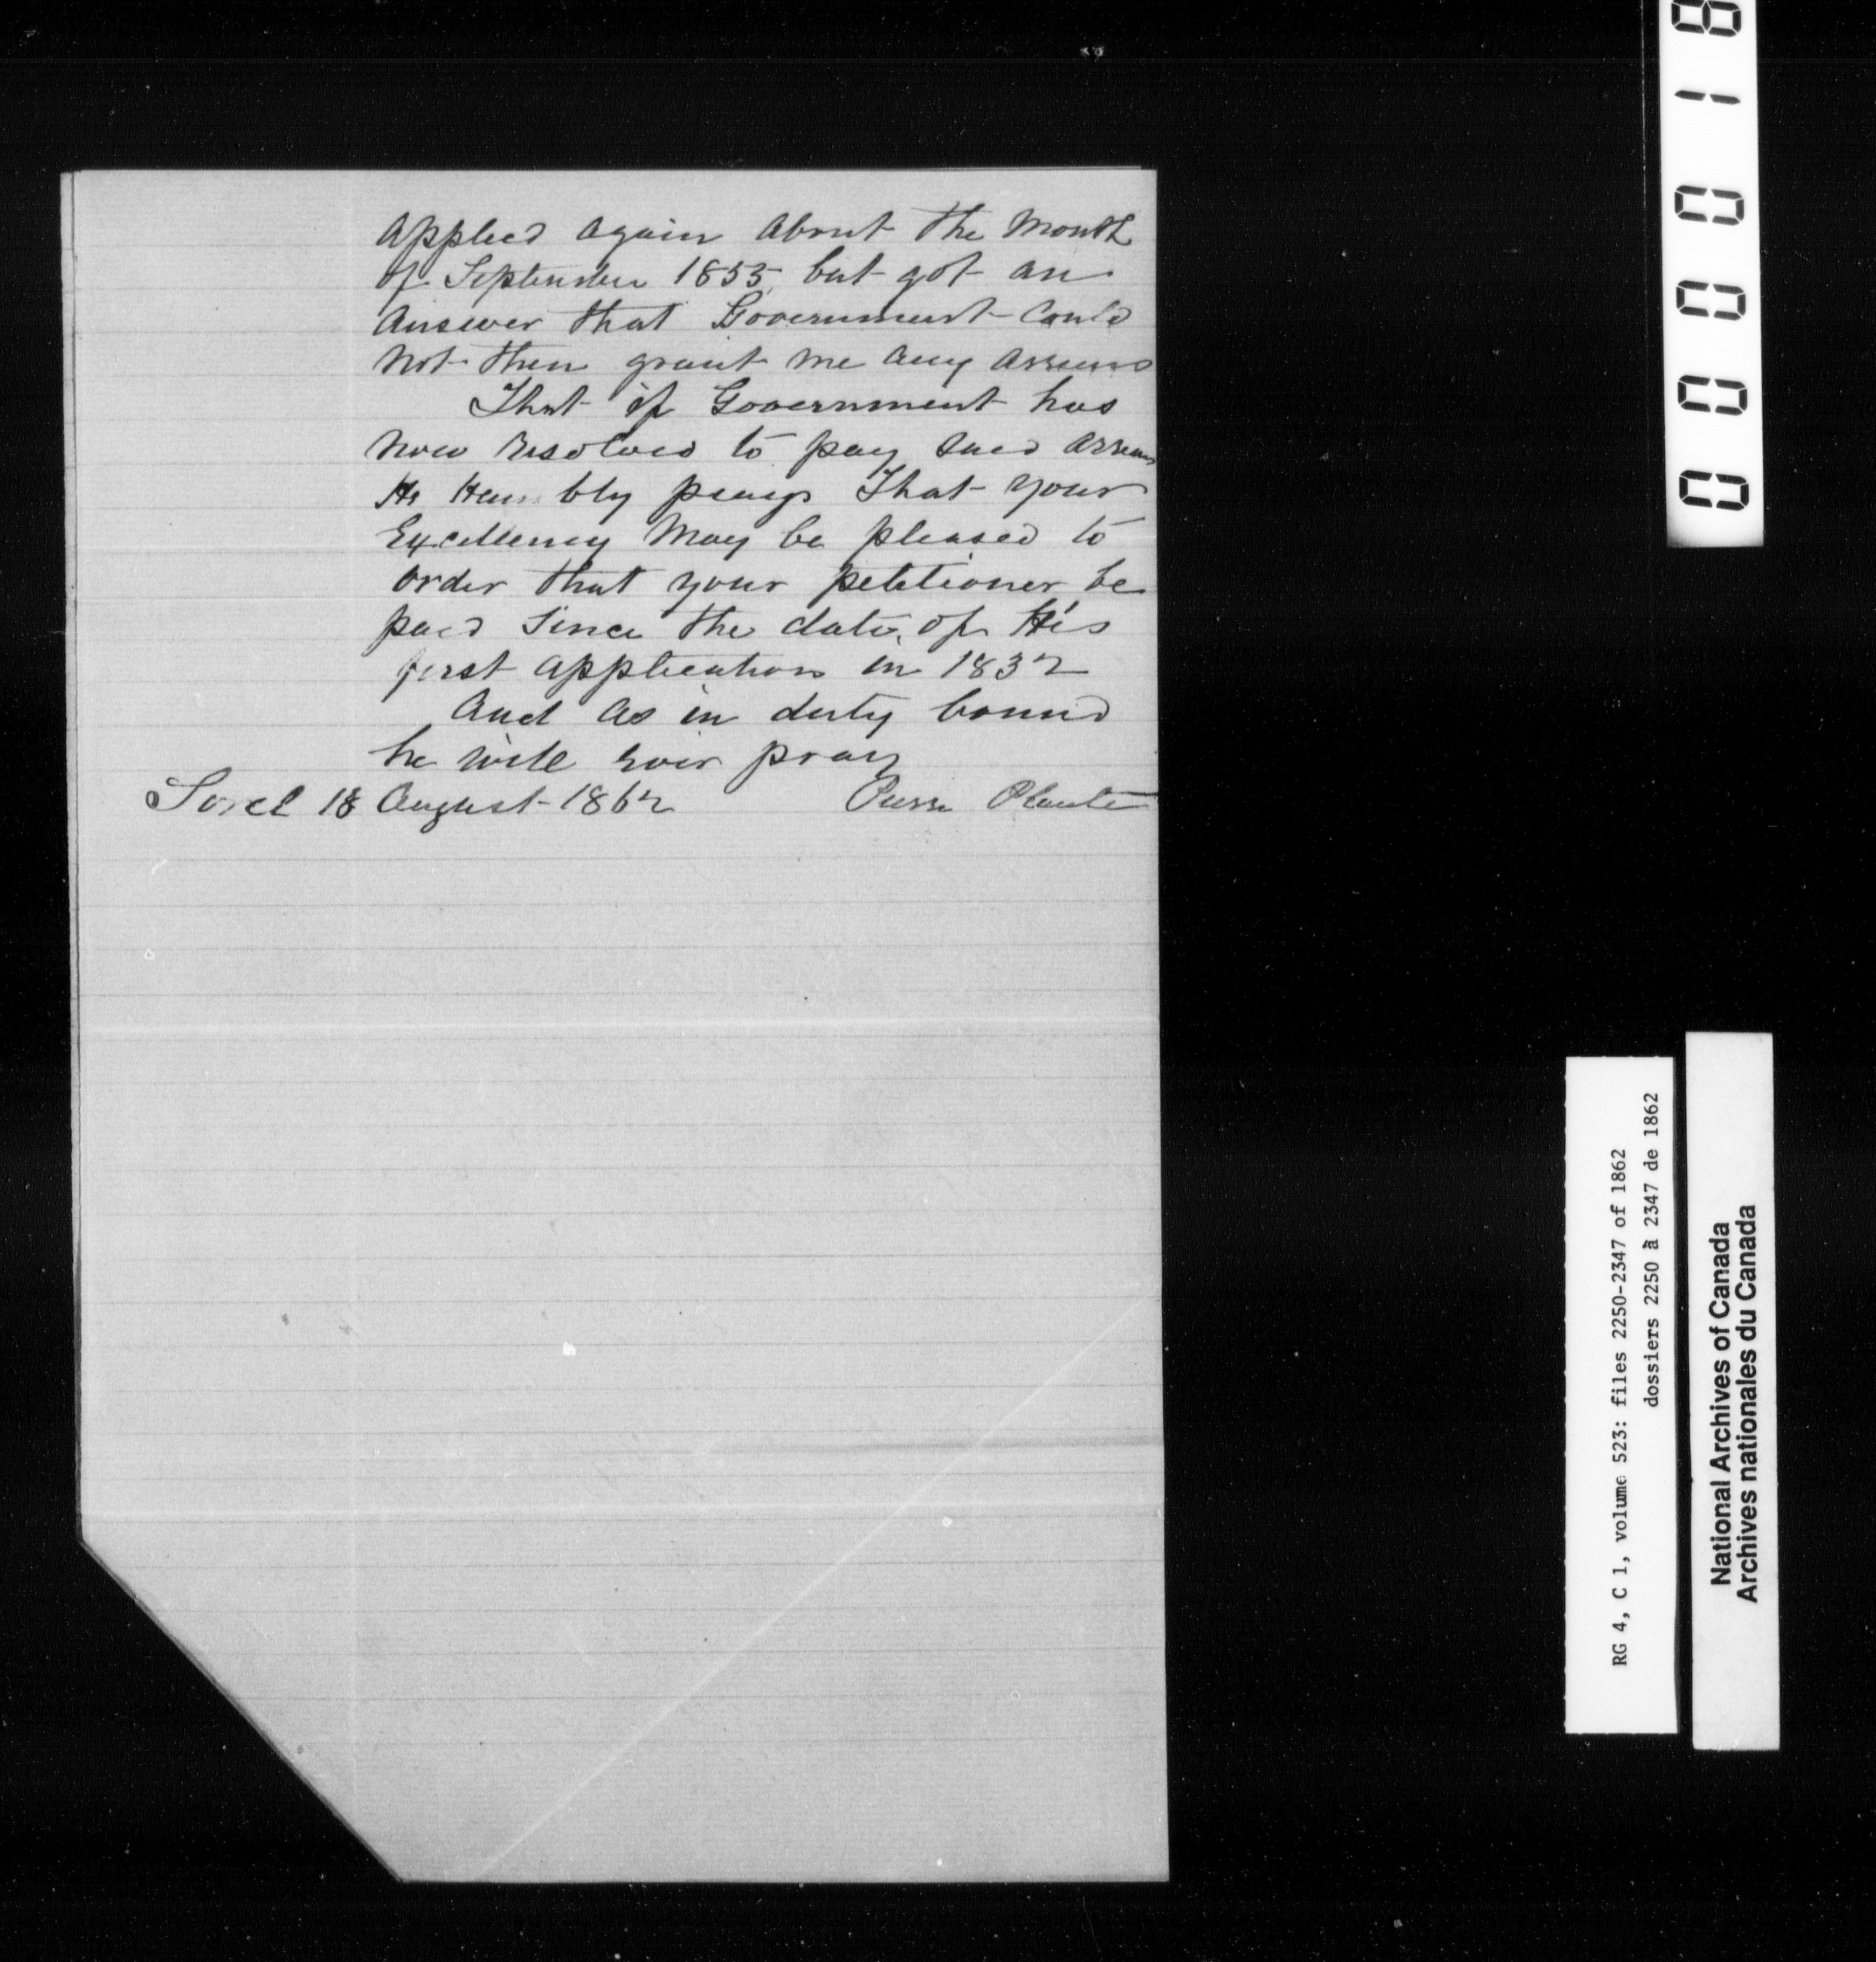 applied again about the Month
of September 1855, but got an
answer that Government could
not then grant me any arrears
That if Government has
now resolved to pay said arrears
He Humbly prays That your
Excellency May be pleased to
order that your petitioner be
paid since the date of His
first application in 1832
And as in duty bound
he will ever pray
Sorel 18 August 1862 Pierre Plante
00018
RG 4, C 1, volume 523: files 2250-2347 of 1862
dossiers 2250 à 2347 de 1862
National Archives of Canada
Archives nationales du Canada